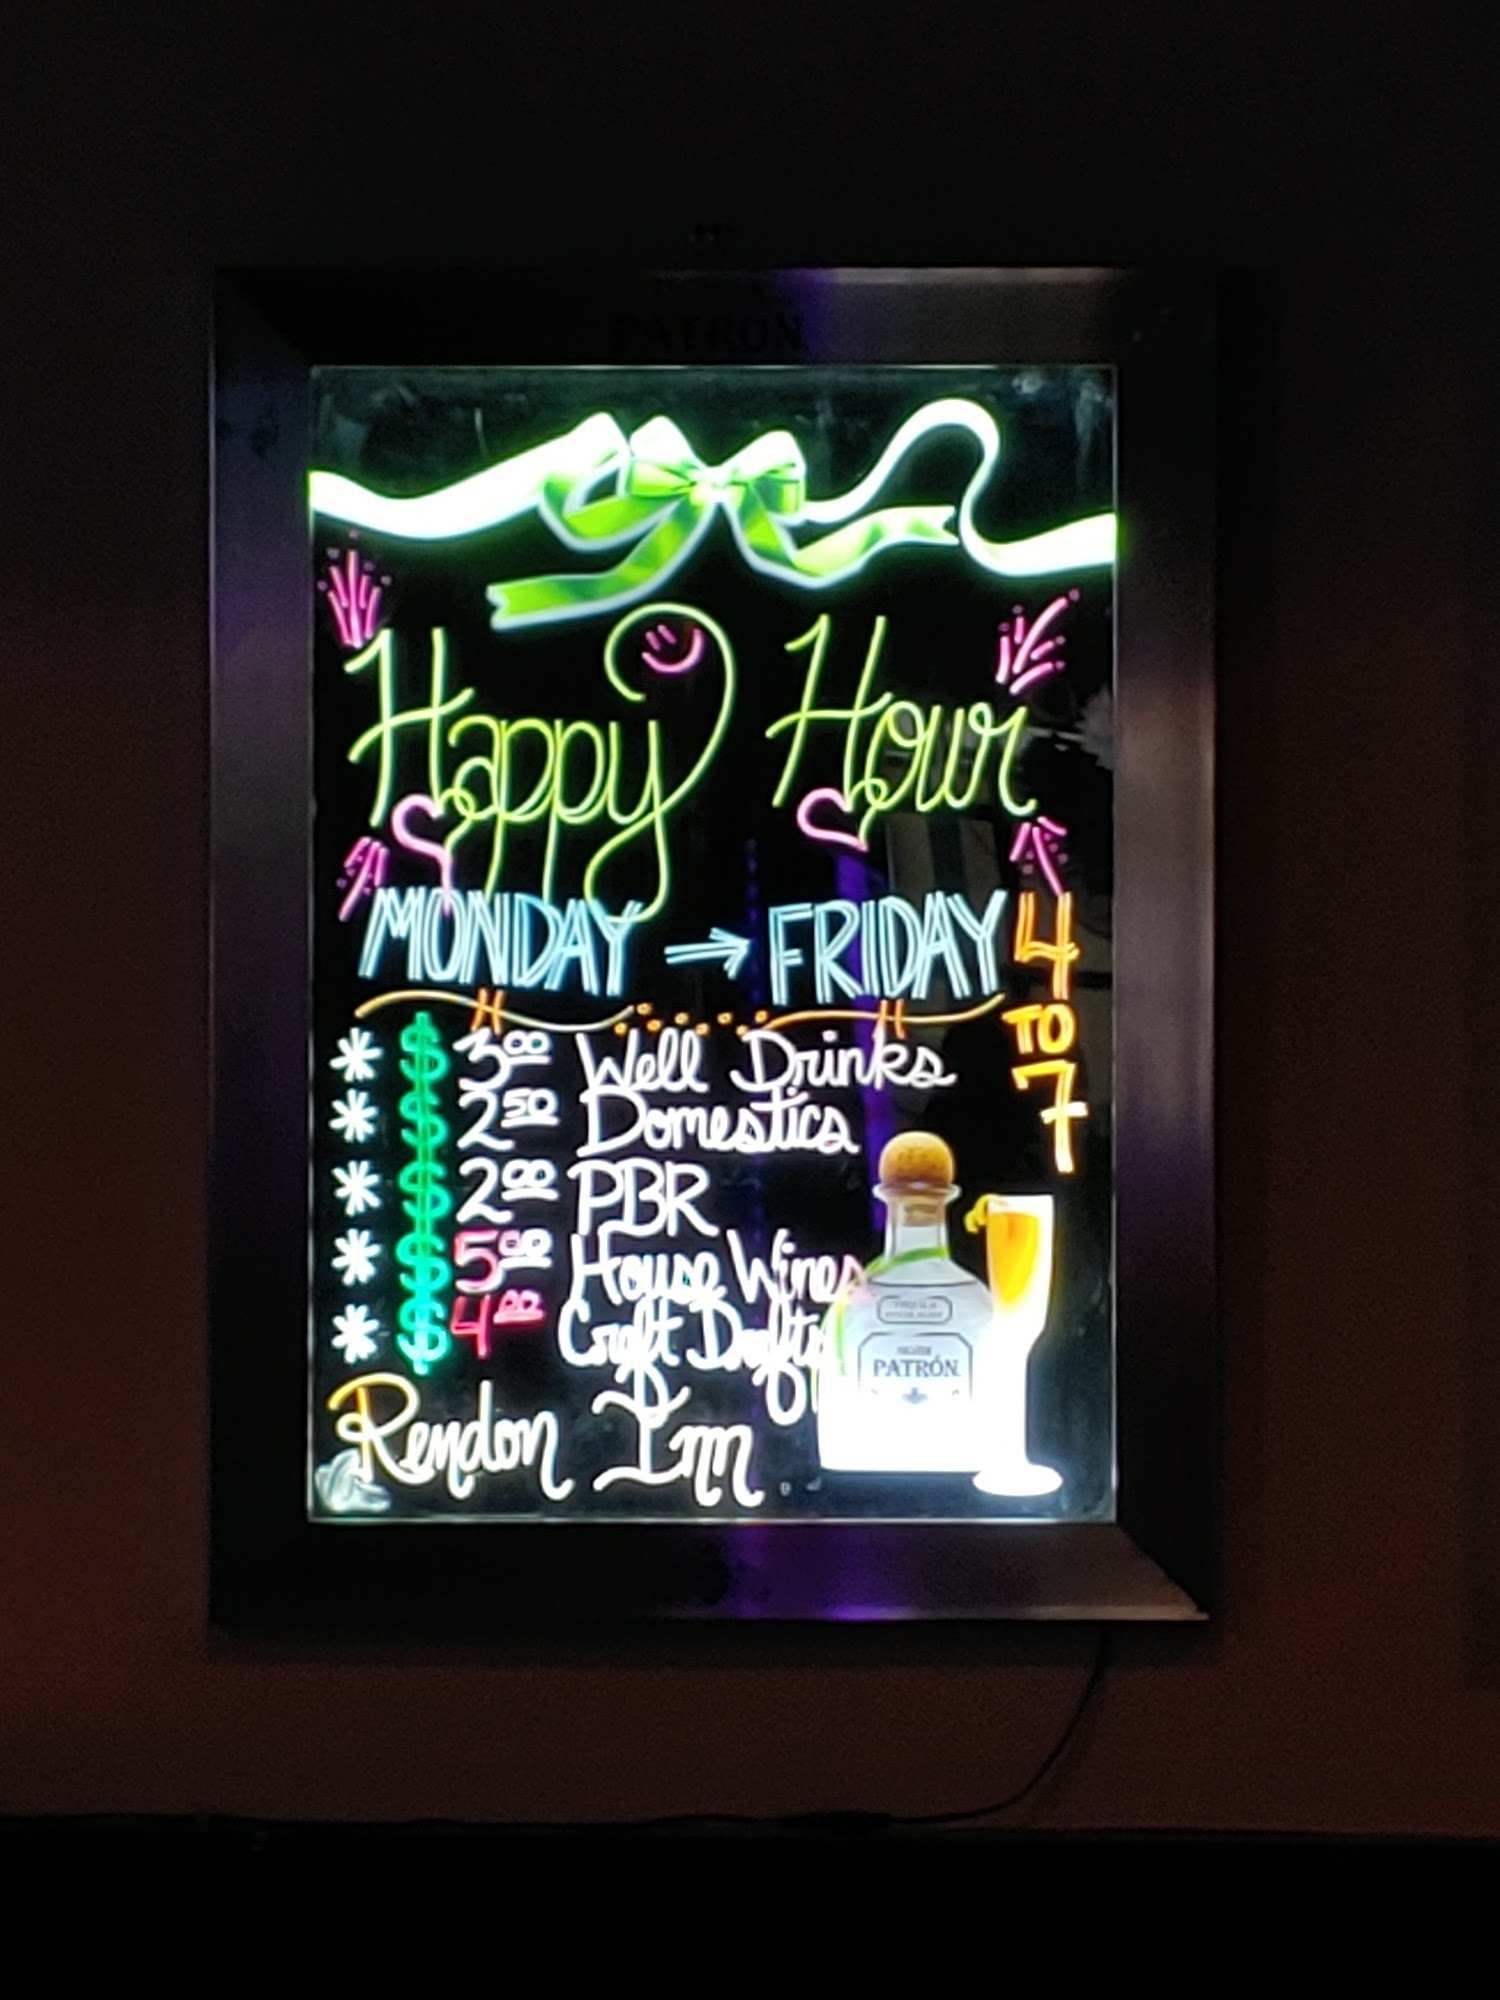 PATRÓN
Happy Hour
MONDAY → FRIDAY 4
TO
7
* $ 3.00 Well Drinks
* $ 2.50 Domestics
* $ 2.00 PBR
* $ 5.00 House Wines
* $ 4.00 Craft Drafts
TEQUILA
SILVER
PATRÓN
Rendon Inn